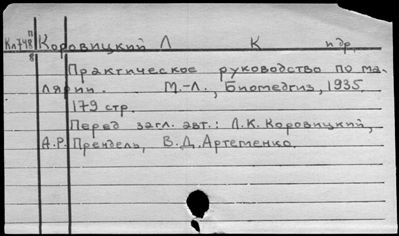 Кл748 п Коровицкий Л К и др.
8
Практическое руководство по ма-
лярии. М.-Л., Биомедгиз, 1935.
179 стр.
Перед загл. авт.: Л.К. Коровицкий,
А.Р. Прендель, В.Д. Артеменко.